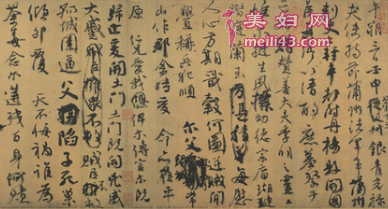 美妇网
meili43.com
夫使持節蒲州諸軍事蒲州
刺史上輕車都尉丹楊縣開國
侯真卿以清酌庶羞祭于
亡姪贈贊善大夫季明之靈曰
惟爾挺生夙標幼德宗廟瑚璉
階庭蘭玉每慰
人心方期戩穀何圖逆賊間
釁稱兵犯順
山作郡余時受命亦在平
原仁兄愛我俾爾傳言爾既
歸止爰開土門土門既開凶威
大蹙賊臣不救
孤城圍逼父陷子死巢
傾卵覆天不悔禍誰為
荼毒念爾遘殘百身何贖